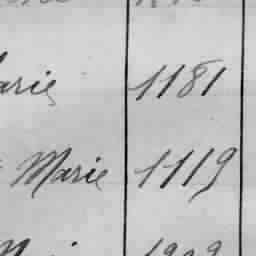 arie 1181
Marie 1119